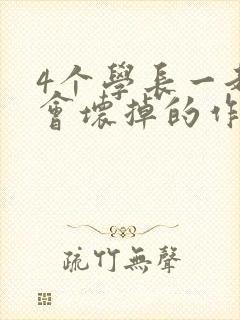 4个學長一
會壞掉的作
疏竹無聲